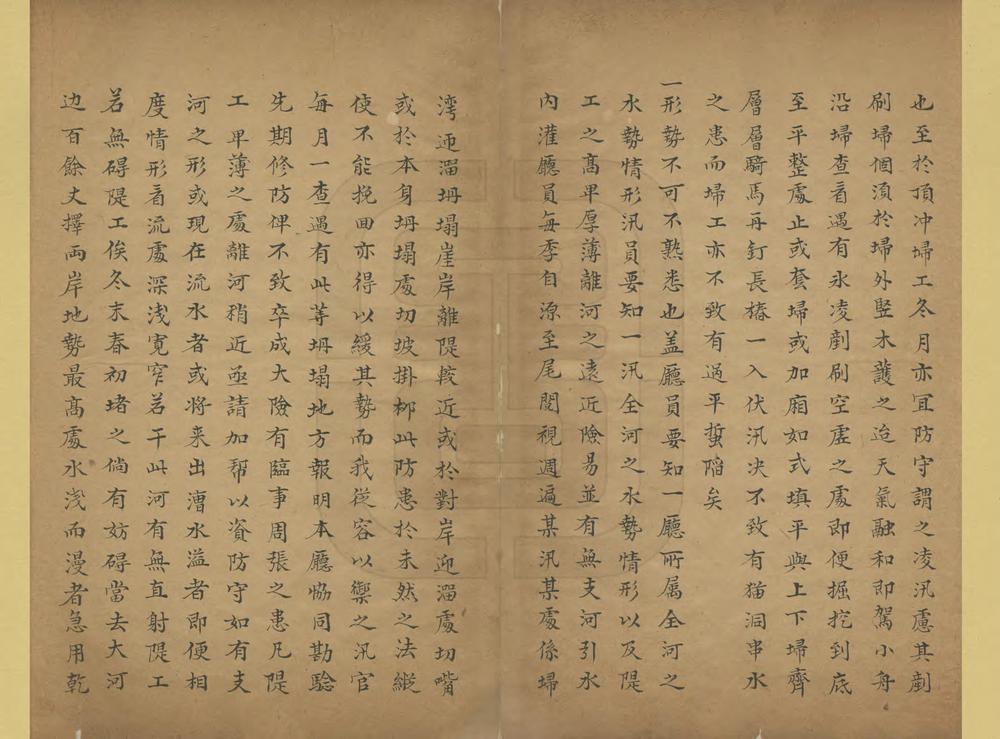 也至於頂冲埽工冬月亦宜防守謂之凌汛慮其剷
刷埽個湏於埽外竪木護之迨天氣融和即駕小舟
沿埽查看遇有氷凌剷刷空虗之處即便掘挖到底
至平整處止或套埽或加廂如式填平與上下埽齊
層層騎馬再釘長樁一入伏汛决不致有猫洞串水
之患而埽工亦不致有過平蜇陷矣
一形勢不可不熟悉也盖廳員要知一廳所属全河之
水勢情形汛員要知一汛全河之水勢情形以及隄
工之髙卑厚薄離河之遠近險易並有無支河引水
内灌廳員每季自源至尾閱視週遍某汛某處係埽
湾迎溜坍塌崖岸離隄較近或於對岸迎溜處切嘴
或於本身坍塌處切坡掛栁此防患於未然之法縱
使不能挽回亦得以緩其勢而我從容以禦之汛官
每月一查遇有此䓁坍塌地方報明本廳恊同勘騐
先期修防俾不致卒成大險有臨事周張之患凡隄
工卑薄之處離河稍近亟請加帮以資防守如有支
河之形或現在流水者或将来出漕水溢者即便相
度情形看流處深浅寛窄若干此河有無直射隄工
若無碍隄工俟冬末春初堵之倘有妨碍當去大河
边百餘丈擇両岸地勢最髙處水浅而漫者急用乾